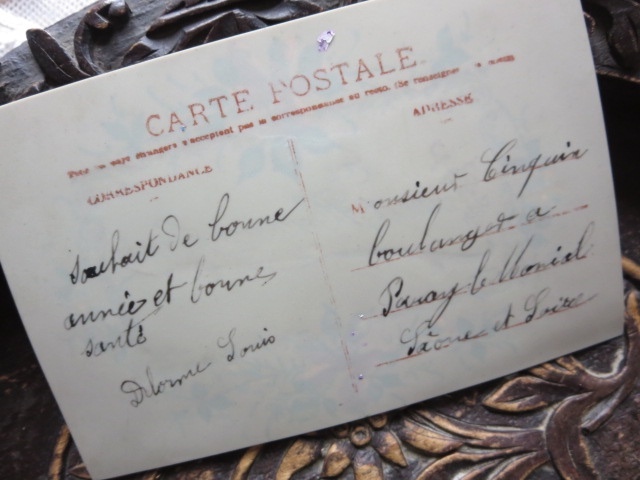 CARTE POSTALE
pays étrangers n'acceptent pas la correspondance au recto.
CORRESPONDANCE
ADRESSE
souhait de bonne
année et bonne
santé
Delorme Louis
Monsieur Cinquin
boulanger a
Paray le Monial
Saône et Loire